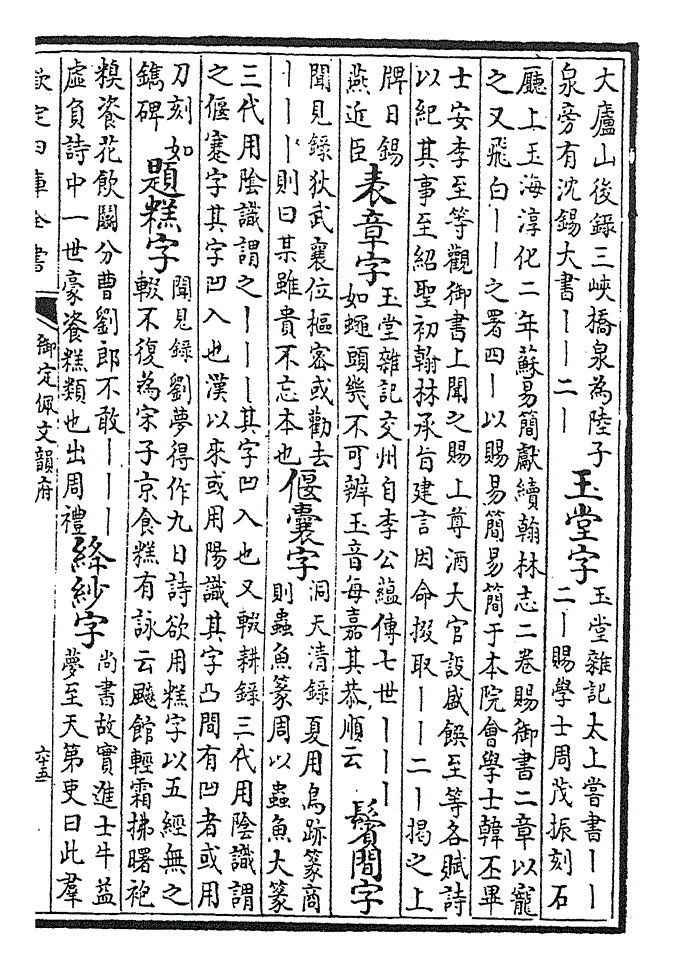 大廬山後錄三峽橋泉為陸子
泉旁有沈錫大書丨丨二丨
玉堂字
玉堂雜記太上嘗書丨丨
二丨賜學士周茂振刻石
廳上玉海淳化二年蘇易簡獻續翰林志二卷賜御書二章以寵
之又飛白丨丨之署四丨以賜易簡易簡于本院會學士韓丕畢
士安李至等觀御書上聞之賜上尊酒大官設盛饌至等各賦詩
以紀其事至紹聖初翰林承旨建言因命掇取丨丨二丨揭之上
牌曰錫
燕近臣
表章字
玉堂雜記交州自李公蘊傳七世丨丨丨
如蠅頭幾不可辨玉音每嘉其恭順云
鬢間字
聞見錄狄武襄位樞密或勸去
丨丨丨則曰某雖貴不忘本也
偃囊字
洞天清録夏用鳥跡篆商
則蟲魚篆周以蟲魚大篆
三代用陰識謂之丨丨丨其字凹入也又輟耕錄三代用陰識謂
之偃蹇字其字凹入也漢以來或用陽識其字凸間有凹者或用
刀刻如
鐫碑
題糕字
聞見錄劉夢得作九日詩欲用糕字以五經無之
輟不復為宋子京食糕有詠云飈館輕霜拂曙袍
糗餈花飲鬬分曹劉郎不敢丨丨丨
虛負詩中一世豪餈糕類也出周禮
絳紗字
尚書故實進士牛益
夢至天第吏曰此羣
欽定四庫全書
御定佩文韻府
六十五